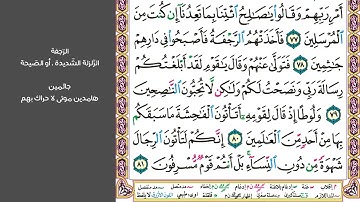 أَمْرِ رَبِّهِمْ وَقَالُوا۟ يَٰصَٰلِحُ ٱئْتِنَا بِمَا تَعِدُنَآ إِن كُنتَ مِنَ
ٱلْمُرْسَلِينَ ٧٧ فَأَخَذَتْهُمُ ٱلرَّجْفَةُ فَأَصْبَحُوا۟ فِى دَارِهِمْ
جَٰثِمِينَ ٧٨ فَتَوَلَّىٰ عَنْهُمْ وَقَالَ يَٰقَوْمِ لَقَدْ أَبْلَغْتُكُمْ
رِسَالَةَ رَبِّى وَنَصَحْتُ لَكُمْ وَلَٰكِن لَّا تُحِبُّونَ ٱلنَّٰصِحِينَ
٧٩ وَلُوطًا إِذْ قَالَ لِقَوْمِهِۦٓ أَتَأْتُونَ ٱلْفَٰحِشَةَ مَا سَبَقَكُم
بِهَا مِنْ أَحَدٍ مِّنَ ٱلْعَٰلَمِينَ ٨٠ إِنَّكُمْ لَتَأْتُونَ ٱلرِّجَالَ
شَهْوَةً مِّن دُونِ ٱلنِّسَآءِ ۚ بَلْ أَنتُمْ قَوْمٌ مُّسْرِفُونَ ٨١
الرّجفة
الزّلزلة الشّديدة . أو الصّيحة
جاثمين
هامدين موتى لا حراك بهم